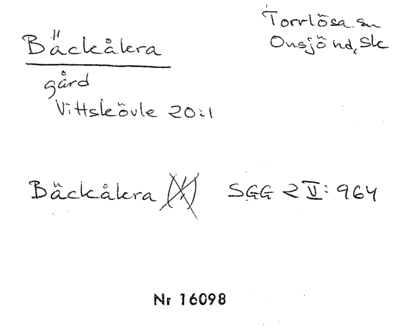 Bäckåkra
Torrlösa sn
Onsjö hd, Sk
gård
Vittskövle 20:1
Bäckåkra SGG 2 V: 964
Nr 16098